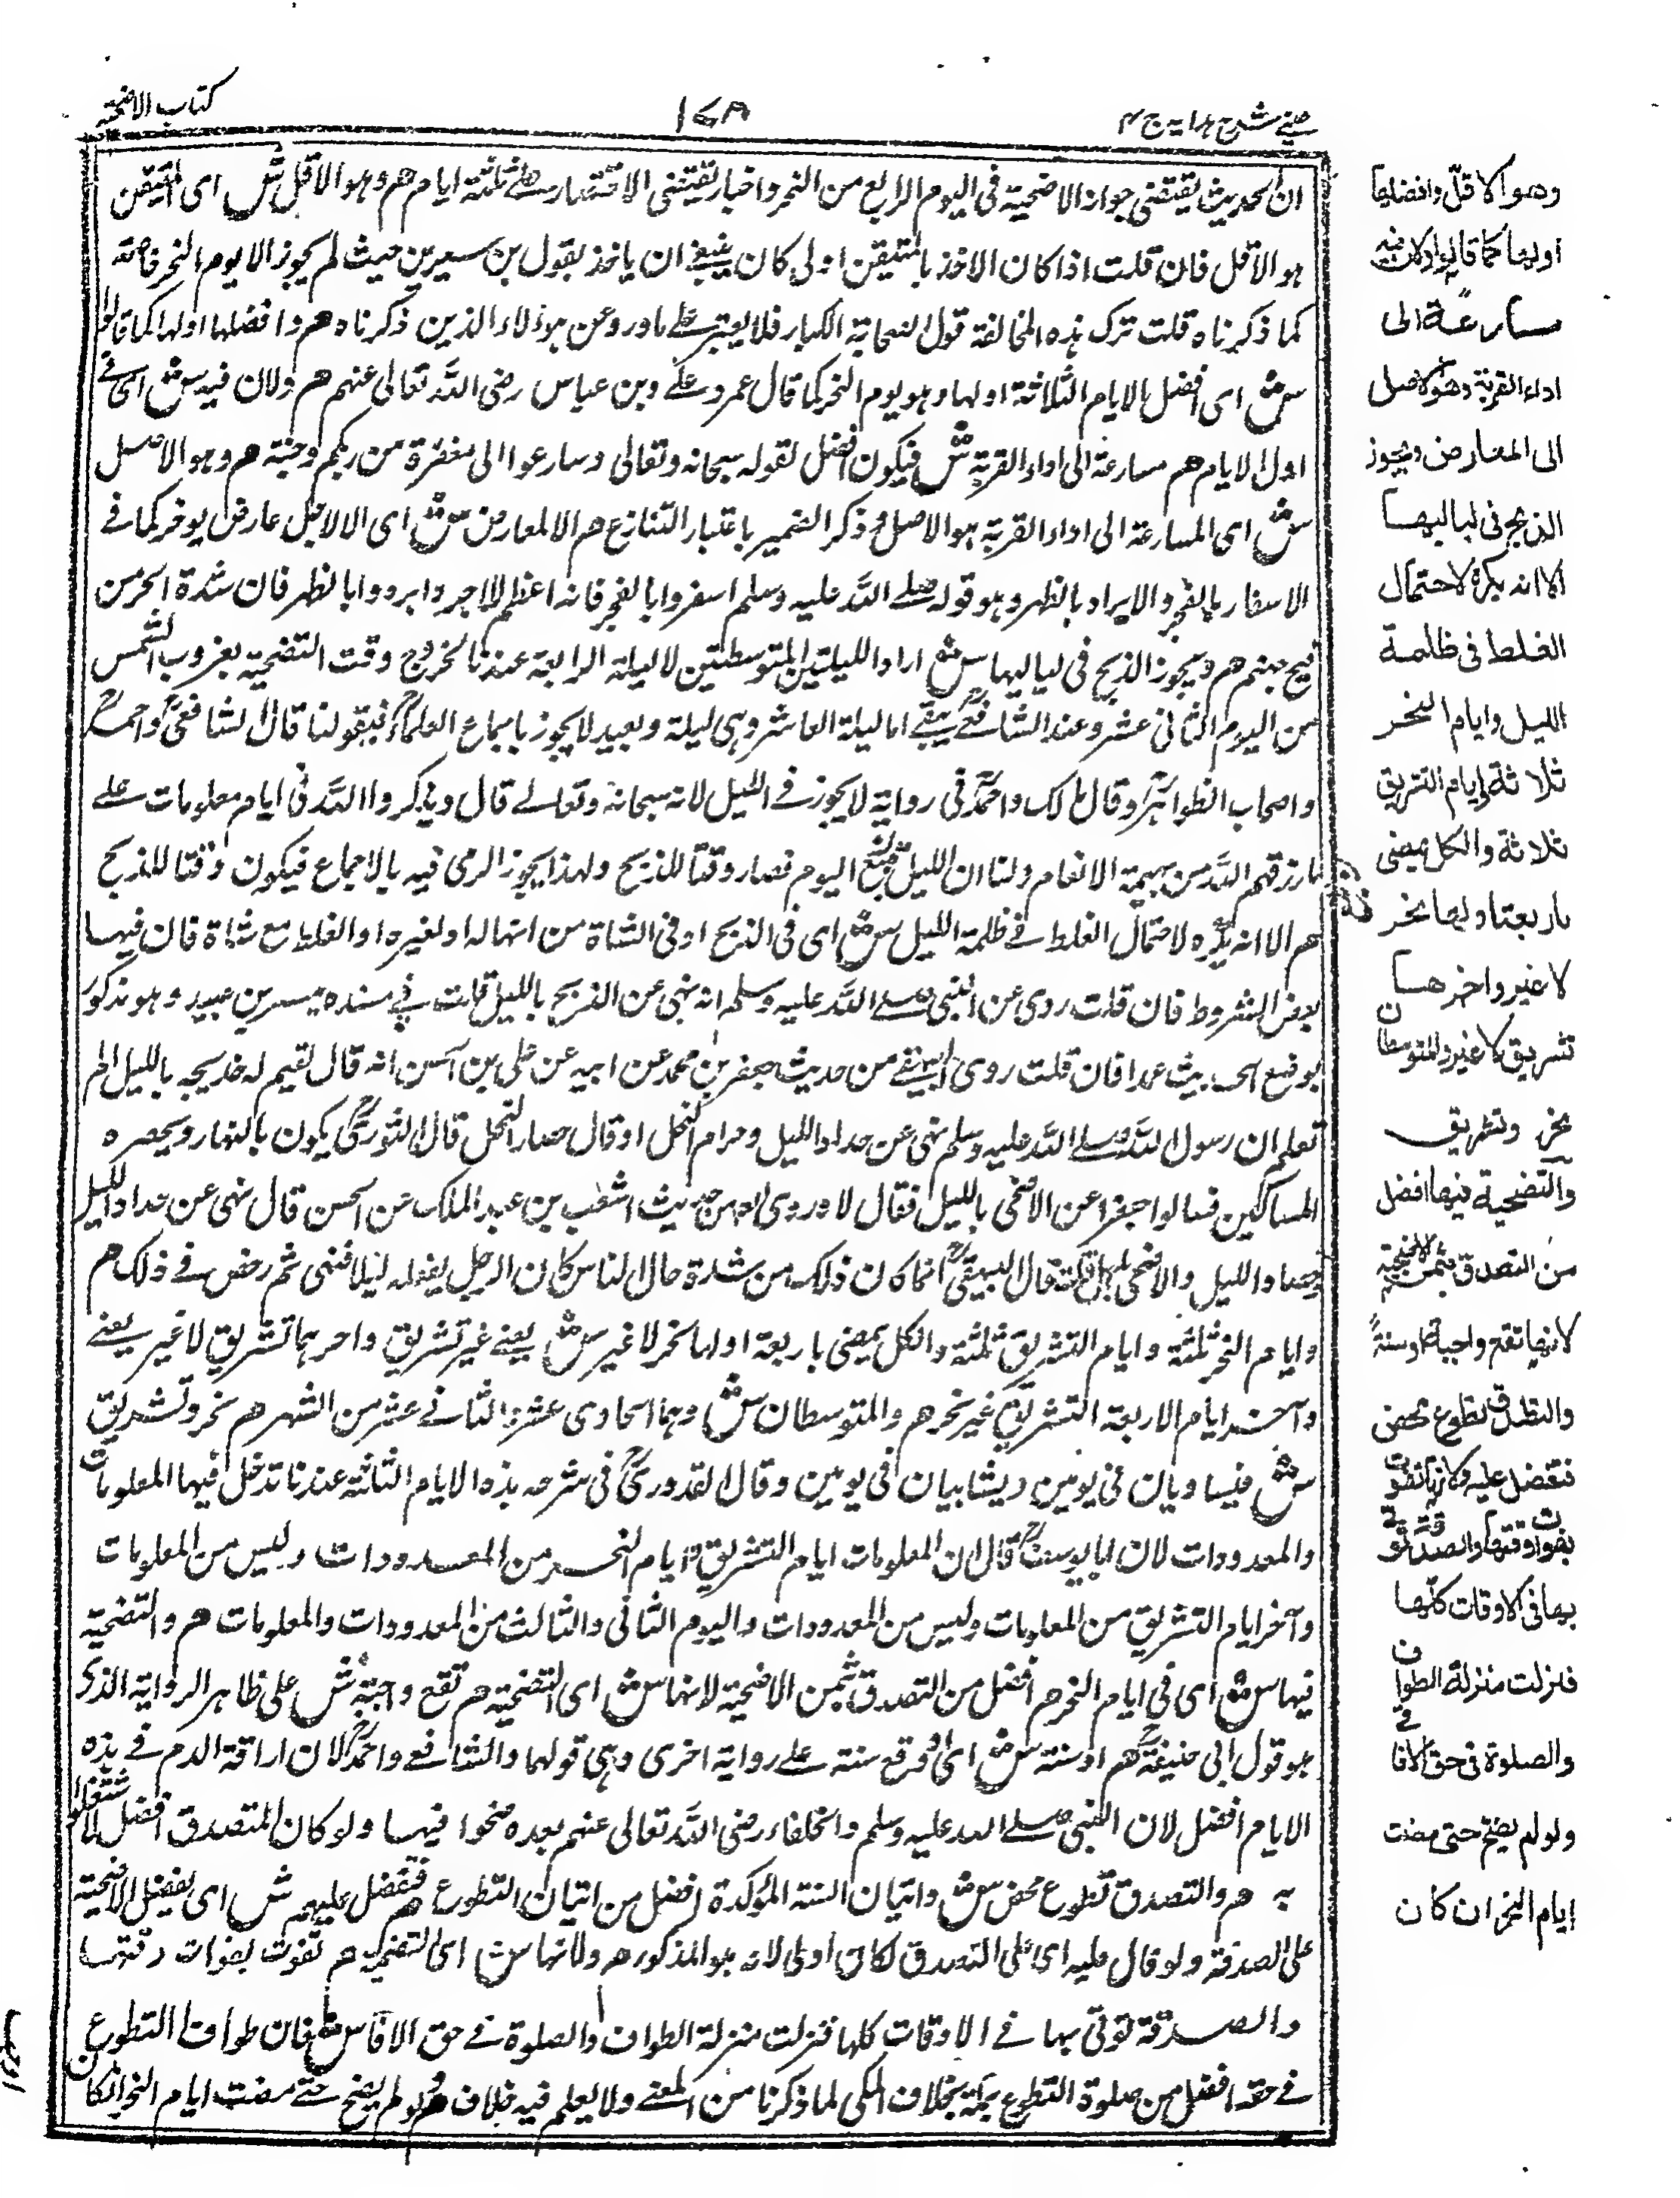 عيني شرح هدايه ج ٤
١٧٨
كتاب الاضحية
ان الحديث يقتضي جواز الاضحية في اليوم الرابع من النحر واخبار تقتضي الاقتصار علے ثلثة ايام هم وهو الاقل ش اى المتيقن
هو الاقل فان قلت اذا كان الاخذ بالمتيقن اولى كان ينبغے ان ياخذ بقول بن سيرين حيث لم يجوز الا يوم النحر خاصة
كما ذكرناه قلت ترك هذه المخالفة قول الصحابة الكبار فلا يعتبر علے ما ورد عن هؤلاء الذين ذكرناه هم وافضلها اولها كما قالوا
ش اى افضل الايام الثلاثة اولها وهو يوم النحر كما قال عمر وعلے وبن عباس رضى الله تعالى عنهم هم ولان فيه ش اى فے
اول الايام هم مسارعة الى اداء القربة ش فيكون افضل لقوله سبحانه وتعالى وسارعوا الى مغفرة من ربكم وجنة هم وهو الاصل
ش اى المسارعة الى اداء القربة هو الاصل وذكر الضمير باعتبار التنازع هم الا لمعارض ش اى الا لاجل عارض يوخر كما فے
الاسفار بالفجر والابراد بالظهر وهو قوله صلے الله عليه وسلم اسفروا بالفجر فانه اعظم للاجر وابردوا بالظهر فان شدة الحر من
فيح جهنم هم ويجوز الذبح فى لياليها ش اراد الليلتين المتوسطتين لا ليلة الرابعة عندنا لخروج وقت التضحية بغروب الشمس
من اليوم الثانى عشر وعند الشافعے يبقے اما ليلة العاشر وهى ليلة وبعيد لا يجوز باجماع العلماء فبقولنا قال الشافعى واحمد
واصحاب الظواهر وقال مالك واحمد فى رواية لا يجوز فے الليل لانه سبحانه وتعالے قال ويذكروا الله فى ايام معلومات علے
ما رزقهم الله من بهيمة الانعام ولنا ان الليل تبع اليوم فصار وقتا للذبح ولهذا يجوز الرمى فيه بالاجماع فيكون وقتا للذبح
هم الا انه يكره لاحتمال الغلط فے ظلمة الليل ش اى فى الذبح او فى الشاة من انها له او لغيره او الغلط مع شاة فان فيها
بعض الشروط فان قلت روى عن النبى صلے الله عليه وسلم انه نهى عن الذبح بالليل قلت فے مسنده ميسر بن عبيد وهو مذكور
بوضع الحديث عمدا فان قلت روى البيهقے من حديث جعفر بن محمد عن ابيه عن على بن الحسن انه قال لقيم له خديجه بالليل الم
تعلم ان رسول الله صلے الله عليه وسلم نهى عن جداد الليل وصرام النخل او قال حصاد النخل قال الثورى يكون بالنهار ويحصره
المساكين فسالوا جعفرا عن الاضحى بالليل فقال لا وروى ايضا من حديث اشعب بن عبد الملك عن الحسن قال نهى عن جداد الليل
وحصاد الليل والاضحى بالليل قلت قال البيهقى انما كان ذلك من شدة حال الناس كان الرجل يفعله ليلا فنهى ثم رخص فے ذلك هم
وايام النحر ثلثة وايام التشريق ثلثة والكل يمضى باربعة اولها نحر لا غير ش يعنے غير تشريق واخرهما تشريق لا غير يعنے
وآخر ايام الاربعة التشريق غير نحر هم والمتوسطان ش وهما الحادى عشر والثانے عشر من الشهر هم نحر وتشريق
ش فيساويان فى يومين ويشابيان فى يومين وقال القدورى فى شرحه هذه الايام الثلثة عندنا تدخل فيها المعلومات
والمعدودات لان ابا يوسف قال ان المعلومات ايام التشريق وايام النحر من المعدودات وليس من المعلومات
وآخر ايام التشريق من المعلومات وليس من المعدودات واليوم الثانى والثالث من المعدودات والمعلومات هم والتضحية
فيها ش اى فى ايام النحر هم افضل من التصدق بثمن الاضحية لانها ش اى التضحية هم تقع واجبة ش على ظاهر الرواية الذى
هو قول ابى حنيفة هم او سنة ش اى او وقع سنة علے رواية اخرى وهى قولهما والشافعے واحمد لان اراقة الدم فے هذه
الايام افضل لان النبى صلے الله عليه وسلم والخلفاء رضى الله تعالى عنهم بعده ضحوا فيها ولو كان التصدق افضل لاشتغلوا
به هم والتصدق تطوع محض ش واتيان السنة المؤكدة افضل من اتيان التطوع هم فتفضل عليه ش اى يفضل الاضحية
على الصدقة ولو قال عليه اى على التصدق لكان اولى لانه هو المذكور هم ولانها ش اى التضحية هم تفوت بفوات وقتها
والصدقة توتى بها فے الاوقات كلها فنزلت منزلة الطواف والصلوة فے حق الافاقى ش فان طواف التطوع
فے حقه افضل من صلوة التطوع بمكة بخلاف المكى لما ذكرنا من المعنے ولا يعلم فيه خلاف هم ولو لم يضح حتے مضت ايام النحر ان كان
وهو الاقل وافضلها
اولها كما قالوا ولان فيه
مسارعة الى
اداء القربة وهو الاصل
الى المعارض ويجوز
الذبح فى لياليها
الا انه يكره لاحتمال
الغلط فى ظلمة
الليل وايام النحر
ثلاثة وايام التشريق
ثلاثة والكل يمضى
باربعة اولها نحر
لا غير واخرها
تشريق لا غير والمتوسطان
نحر وتشريق
والتضحية فيها افضل
من التصدق بثمن الاضحية
لانها تقع واجبة او سنة
والتصدق تطوع محض
فتفضل عليه ولانها تفوت
بفوات وقتها والصدقة توتى
بها فى الاوقات كلها
فنزلت منزلة الطواف
والصلوة فى حق الافاقى
ولو لم يضح حتى مضت
ايام النحر ان كان